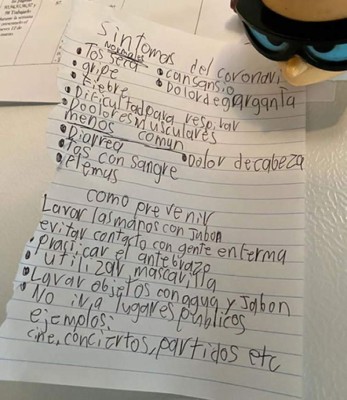 Sintomas del coronavi
normales
• Tos seca • cansansio
• gripe • Dolor de garganta
• Fiebre
• Dificultad para respirar
• Dolores Musculares
menos comun
• Diarrea • Dolor de cabeza
• Tos con sangre
• flemas
como prevenir
Lavar las manos con Jabon
evitar contasto con gente enferma
• prasticar el antebrazo
• utilizar mascarilla
• Lavar objetos con agua y Jabon
• No ir a lugares publicos
ejemplos:
cine, conciertos, partidos etc